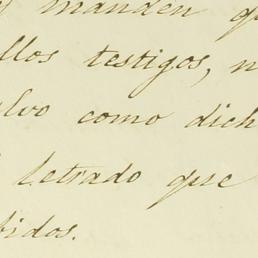 y manden q
llos testigos, n
lvo como dich
letrado que
bidos.